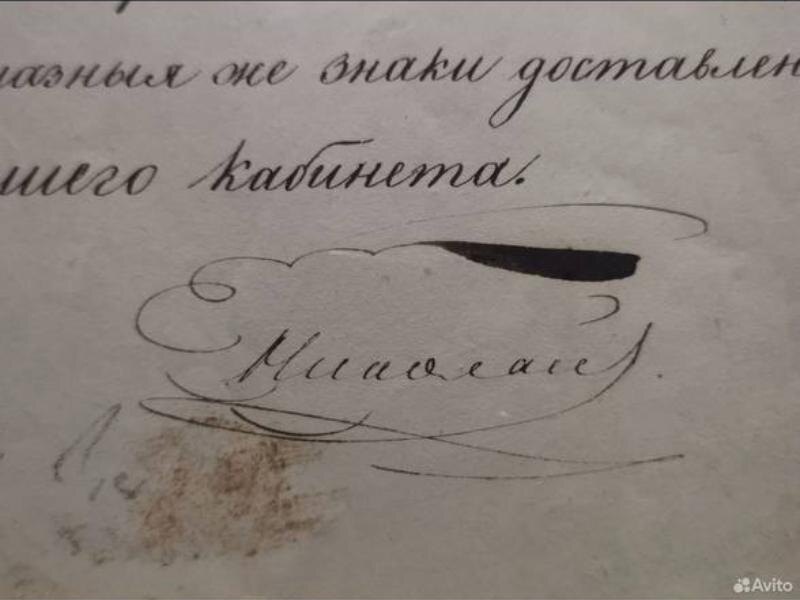 мазныя же знаки доставлен
шего кабинета.
Николай
Avito